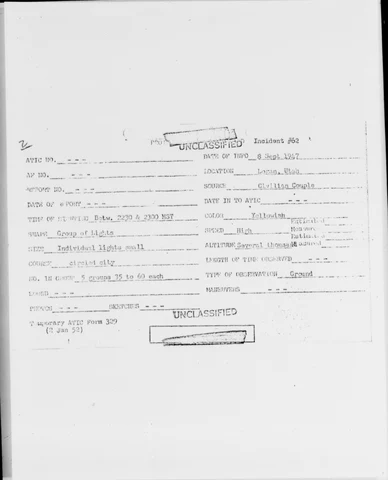 UNCLASSIFIED Incident #62
ATIC NO. - - - DATE OF INFO 8 Sept 1947
AF NO. - - - LOCATION Logan, Utah
REPORT NO. - - - SOURCE Civilian Couple
DATE OF REPORT - - - DATE IN TO ATIC - - -
TIME OF SIGHTING Betw. 2230 & 2300 MST COLOR Yellowish
SHAPE Group of Lights SPEED High
SIZE Individual lights small ALTITUDE Several thousand
COURSE circled city LENGTH OF TIME OBSERVED - - -
NO. IN GROUP 5 groups 35 to 60 each TYPE OF OBSERVATION Ground
SOUND - - - MANEUVERS - - -
PHOTOS SKETCHES - - -
Temporary ATIC Form 329
(2 Jan 52)
UNCLASSIFIED